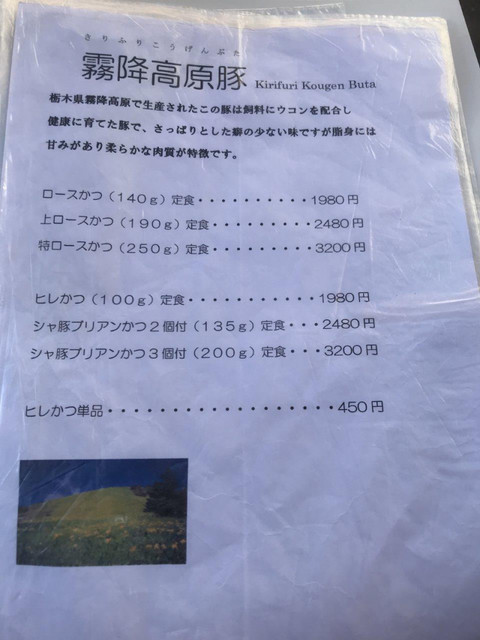 きりふりこうげんぶた
霧降高原豚 Kirifuri Kougen Buta
栃木県霧降高原で生産されたこの豚は飼料にウコンを配合し
健康に育てた豚で、さっぱりとした癖の少ない味ですが脂身には
甘みがあり柔らかな肉質が特徴です。
ロースかつ(140g)定食・・・・・・・・・・1980円
上ロースかつ(190g)定食・・・・・・・・・2480円
特ロースかつ(250g)定食・・・・・・・・・3200円
ヒレかつ(100g)定食・・・・・・・・・・・1980円
シャ豚ブリアンかつ2個付(135g)定食・・・2480円
シャ豚ブリアンかつ3個付(200g)定食・・・3200円
ヒレかつ単品・・・・・・・・・・・・・・・・・・450円